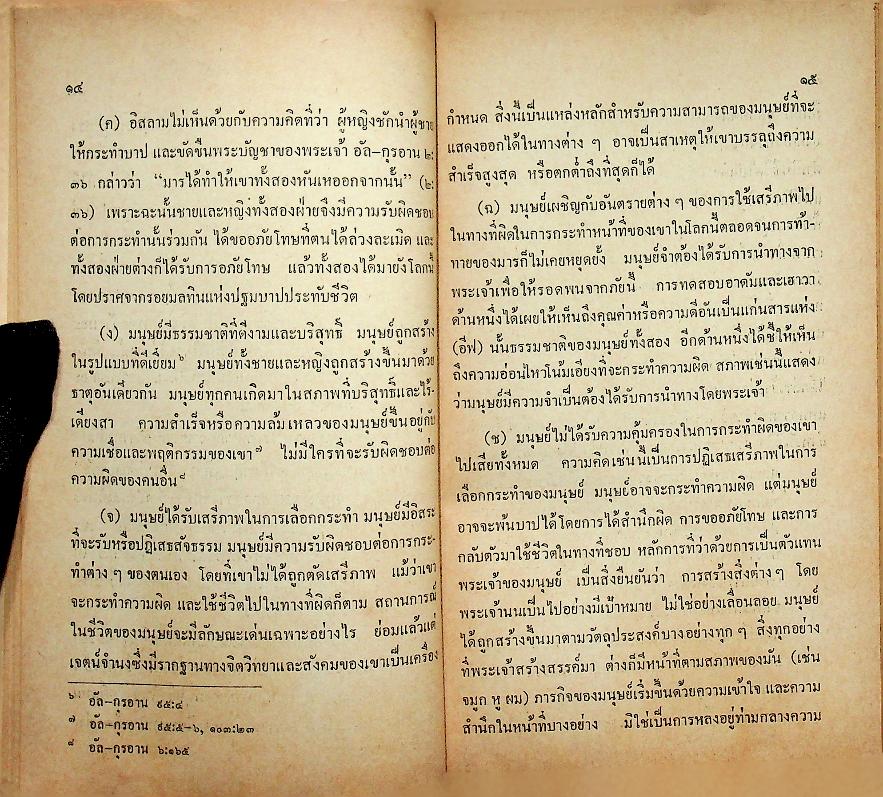 ๑๔
(ค) อิสลามไม่เห็นด้วยกับความคิดที่ว่า ผู้หญิงชักนำผู้ชาย
ให้กระทำบาป และขัดขืนพระบัญชาของพระเจ้า อัล–กุรอาน ๒:
๓๖ กล่าวว่า “มารได้ทำให้เขาทั้งสองหันเหออกจากนั้น” (๒:
๓๖) เพราะฉะนั้นชายและหญิงทั้งสองฝ่ายจึงมีความรับผิดชอบ
ต่อการกระทำนั้นร่วมกัน ได้ขออภัยโทษที่ตนได้ล่วงละเมิด และ
ทั้งสองฝ่ายต่างก็ได้รับการอภัยโทษ แล้วทั้งสองได้มายังโลกนี้
โดยปราศจากรอยมลทินแห่งปฐมบาปประทับชีวิต
(ง) มนุษย์มีธรรมชาติที่ดีงามและบริสุทธิ์ มนุษย์ถูกสร้าง
ในรูปแบบที่ดีเยี่ยม๖ มนุษย์ทั้งชายและหญิงถูกสร้างขึ้นมาด้วย
ธาตุอันเดียวกัน มนุษย์ทุกคนเกิดมาในสภาพที่บริสุทธิ์และไร้-
เดียงสา ความสำเร็จหรือความล้มเหลวของมนุษย์ขึ้นอยู่กับ
ความเชื่อและพฤติกรรมของเขา๗ ไม่มีใครที่จะรับผิดชอบต่อ
ความผิดของคนอื่น๘
(จ) มนุษย์ได้รับเสรีภาพในการเลือกกระทำ มนุษย์มีอิสระ
ที่จะรับหรือปฏิเสธสัจธรรม มนุษย์มีความรับผิดชอบต่อการกระ-
ทำต่าง ๆ ของตนเอง โดยที่เขาไม่ได้ถูกตัดเสรีภาพ แม้ว่าเขา
จะกระทำความผิด และใช้ชีวิตไปในทางที่ผิดก็ตาม สถานการณ์
ในชีวิตของมนุษย์จะมีลักษณะเด่นเฉพาะอย่างไร ย่อมแล้วแต่
เจตน์จำนงซึ่งมีรากฐานทางจิตวิทยาและสังคมของเขาเป็นเครื่อง
๖ อัล–กุรอาน ๙๕:๔
๗ อัล–กุรอาน ๙๕:๕–๖, ๑๐๓:๒๓
๘ อัล–กุรอาน ๖:๑๖๕
๑๕
กำหนด สิ่งนี้เป็นแหล่งหลักสำหรับความสามารถของมนุษย์ที่จะ
แสดงออกได้ในทางต่าง ๆ อาจเป็นสาเหตุให้เขาบรรลุถึงความ
สำเร็จสูงสุด หรือตกต่ำถึงที่สุดก็ได้
(ฉ) มนุษย์เผชิญกับอันตรายต่าง ๆ ของการใช้เสรีภาพไป
ในทางที่ผิดในการกระทำหน้าที่ของเขาในโลกนี้ตลอดจนการท้า-
ทายของมารก็ไม่เคยหยุดยั้ง มนุษย์จำต้องได้รับการนำทางจาก
พระเจ้าเพื่อให้รอดพนจากภัยนี้ การทดสอบอาดัมและเฮาวา
ด้านหนึ่งได้เผยให้เห็นถึงคุณค่าหรือความดีอันเป็นแก่นสารแห่ง
(อีฟ) นั้นธรรมชาติของมนุษย์ทั้งสอง อีกด้านหนึ่งได้ชี้ให้เห็น
ถึงความอ่อนไหวโน้มเอียงที่จะกระทำความผิด สภาพเช่นนี้แสดง
ว่ามนุษย์มีความจำเป็นต้องได้รับการนำทางโดยพระเจ้า
(ช) มนุษย์ไม่ได้รับความคุ้มครองในการกระทำผิดของเขา
ไปเสียทั้งหมด ความคิดเช่นนี้เป็นการปฏิเสธเสรีภาพในการ
เลือกกระทำของมนุษย์ มนุษย์อาจจะกระทำความผิด แต่มนุษย์
อาจจะพ้นบาปได้โดยการได้สำนึกผิด การขออภัยโทษ และการ
กลับตัวมาใช้ชีวิตในทางที่ชอบ หลักการที่ว่าด้วยการเป็นตัวแทน
พระเจ้าของมนุษย์ เป็นสิ่งยืนยันว่า การสร้างสิ่งต่างๆ โดย
พระเจ้านนเป็นไปอย่างมีเป้าหมาย ไม่ใช่อย่างเลื่อนลอย มนุษย์
ได้ถูกสร้างขึ้นมาตามวัตถุประสงค์บางอย่างทุก ๆ สิ่งทุกอย่าง
ที่พระเจ้าสร้างสรรค์มา ต่างก็มีหน้าที่ตามสภาพของมัน (เช่น
จมูก หู ผม) ภารกิจของมนุษย์เริ่มขึ้นด้วยความเข้าใจ และความ
สำนึกในหน้าที่บางอย่าง มิใช่เป็นการหลงอยู่ท่ามกลางความ